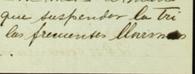 que suspender la tri
las frecuentes lluvias